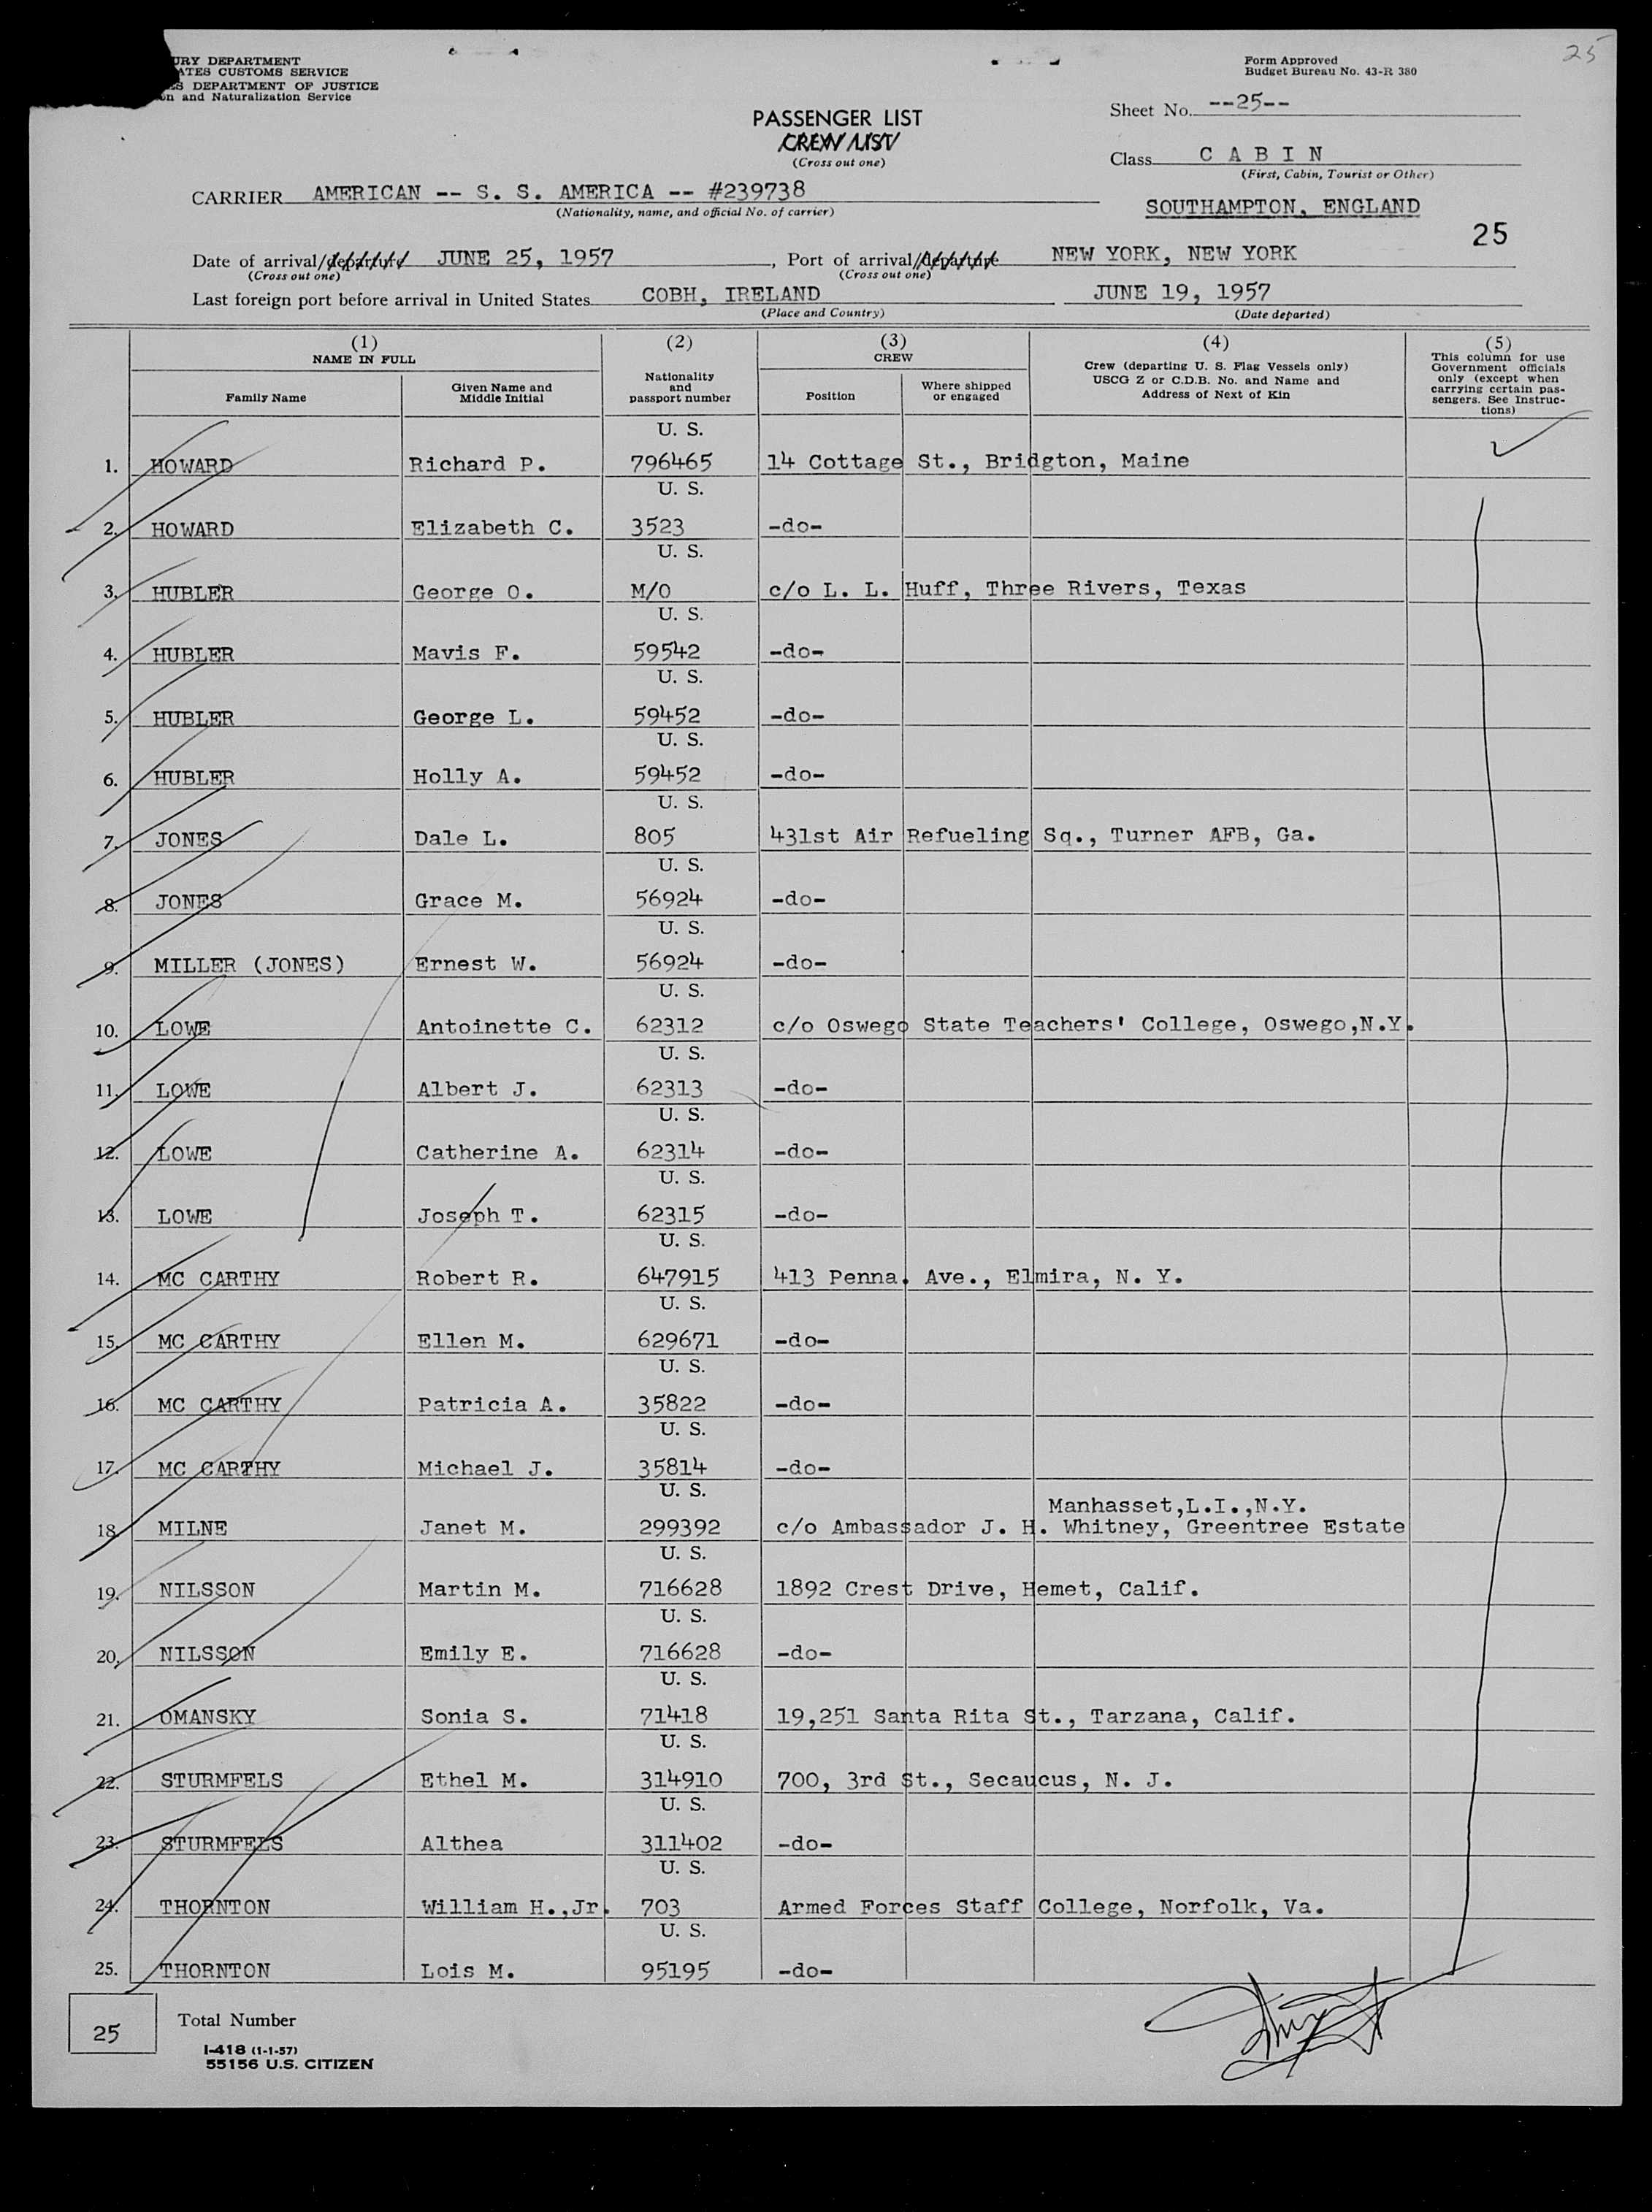 25
URY DEPARTMENT
ATES CUSTOMS SERVICE
S DEPARTMENT OF JUSTICE
on and Naturalization Service
Form Approved
Budget Bureau No. 43-R 380
PASSENGER LIST
CREW LIST
(Cross out one)
Sheet No. --25--
Class C A B I N
(First, Cabin, Tourist or Other)
CARRIER AMERICAN -- S. S. AMERICA -- #239738
(Nationality, name, and official No. of carrier)
SOUTHAMPTON, ENGLAND
25
Date of arrival/departure JUNE 25, 1957, Port of arrival/departure NEW YORK, NEW YORK
(Cross out one) (Cross out one)
Last foreign port before arrival in United States COBH, IRELAND JUNE 19, 1957
(Place and Country) (Date departed)
(1) NAME IN FULL
Family Name
Given Name and Middle Initial
(2) Nationality and passport number
(3) CREW
Position
Where shipped or engaged
(4) Crew (departing U. S. Flag Vessels only) USCG Z or C.D.B. No. and Name and Address of Next of Kin
(5) This column for use Government officials only (except when carrying certain passengers. See Instructions)
U. S.
1. HOWARD Richard P. 796465 14 Cottage St., Bridgton, Maine
U. S.
2. HOWARD Elizabeth C. 3523 -do-
U. S.
3. HUBLER George O. M/O c/o L. L. Huff, Three Rivers, Texas
U. S.
4. HUBLER Mavis F. 59542 -do-
U. S.
5. HUBLER George L. 59452 -do-
U. S.
6. HUBLER Holly A. 59452 -do-
U. S.
7. JONES Dale L. 805 431st Air Refueling Sq., Turner AFB, Ga.
U. S.
8. JONES Grace M. 56924 -do-
U. S.
9. MILLER (JONES) Ernest W. 56924 -do-
U. S.
10. LOWE Antoinette C. 62312 c/o Oswego State Teachers' College, Oswego,N.Y.
U. S.
11. LOWE Albert J. 62313 -do-
U. S.
12. LOWE Catherine A. 62314 -do-
U. S.
13. LOWE Joseph T. 62315 -do-
U. S.
14. MC CARTHY Robert R. 647915 413 Penna. Ave., Elmira, N. Y.
U. S.
15. MC CARTHY Ellen M. 629671 -do-
U. S.
16. MC CARTHY Patricia A. 35822 -do-
U. S.
17. MC CARTHY Michael J. 35814 -do-
U. S. Manhasset,L.I.,N.Y.
18. MILNE Janet M. 299392 c/o Ambassador J. H. Whitney, Greentree Estate
U. S.
19. NILSSON Martin M. 716628 1892 Crest Drive, Hemet, Calif.
U. S.
20. NILSSON Emily E. 716628 -do-
U. S.
21. OMANSKY Sonia S. 71418 19,251 Santa Rita St., Tarzana, Calif.
U. S.
22. STURMFELS Ethel M. 314910 700, 3rd St., Secaucus, N. J.
U. S.
23. STURMFELS Althea 311402 -do-
U. S.
24. THORNTON William H.,Jr. 703 Armed Forces Staff College, Norfolk, Va.
U. S.
25. THORNTON Lois M. 95195 -do-
25 Total Number
I-418 (1-1-57)
55156 U.S. CITIZEN